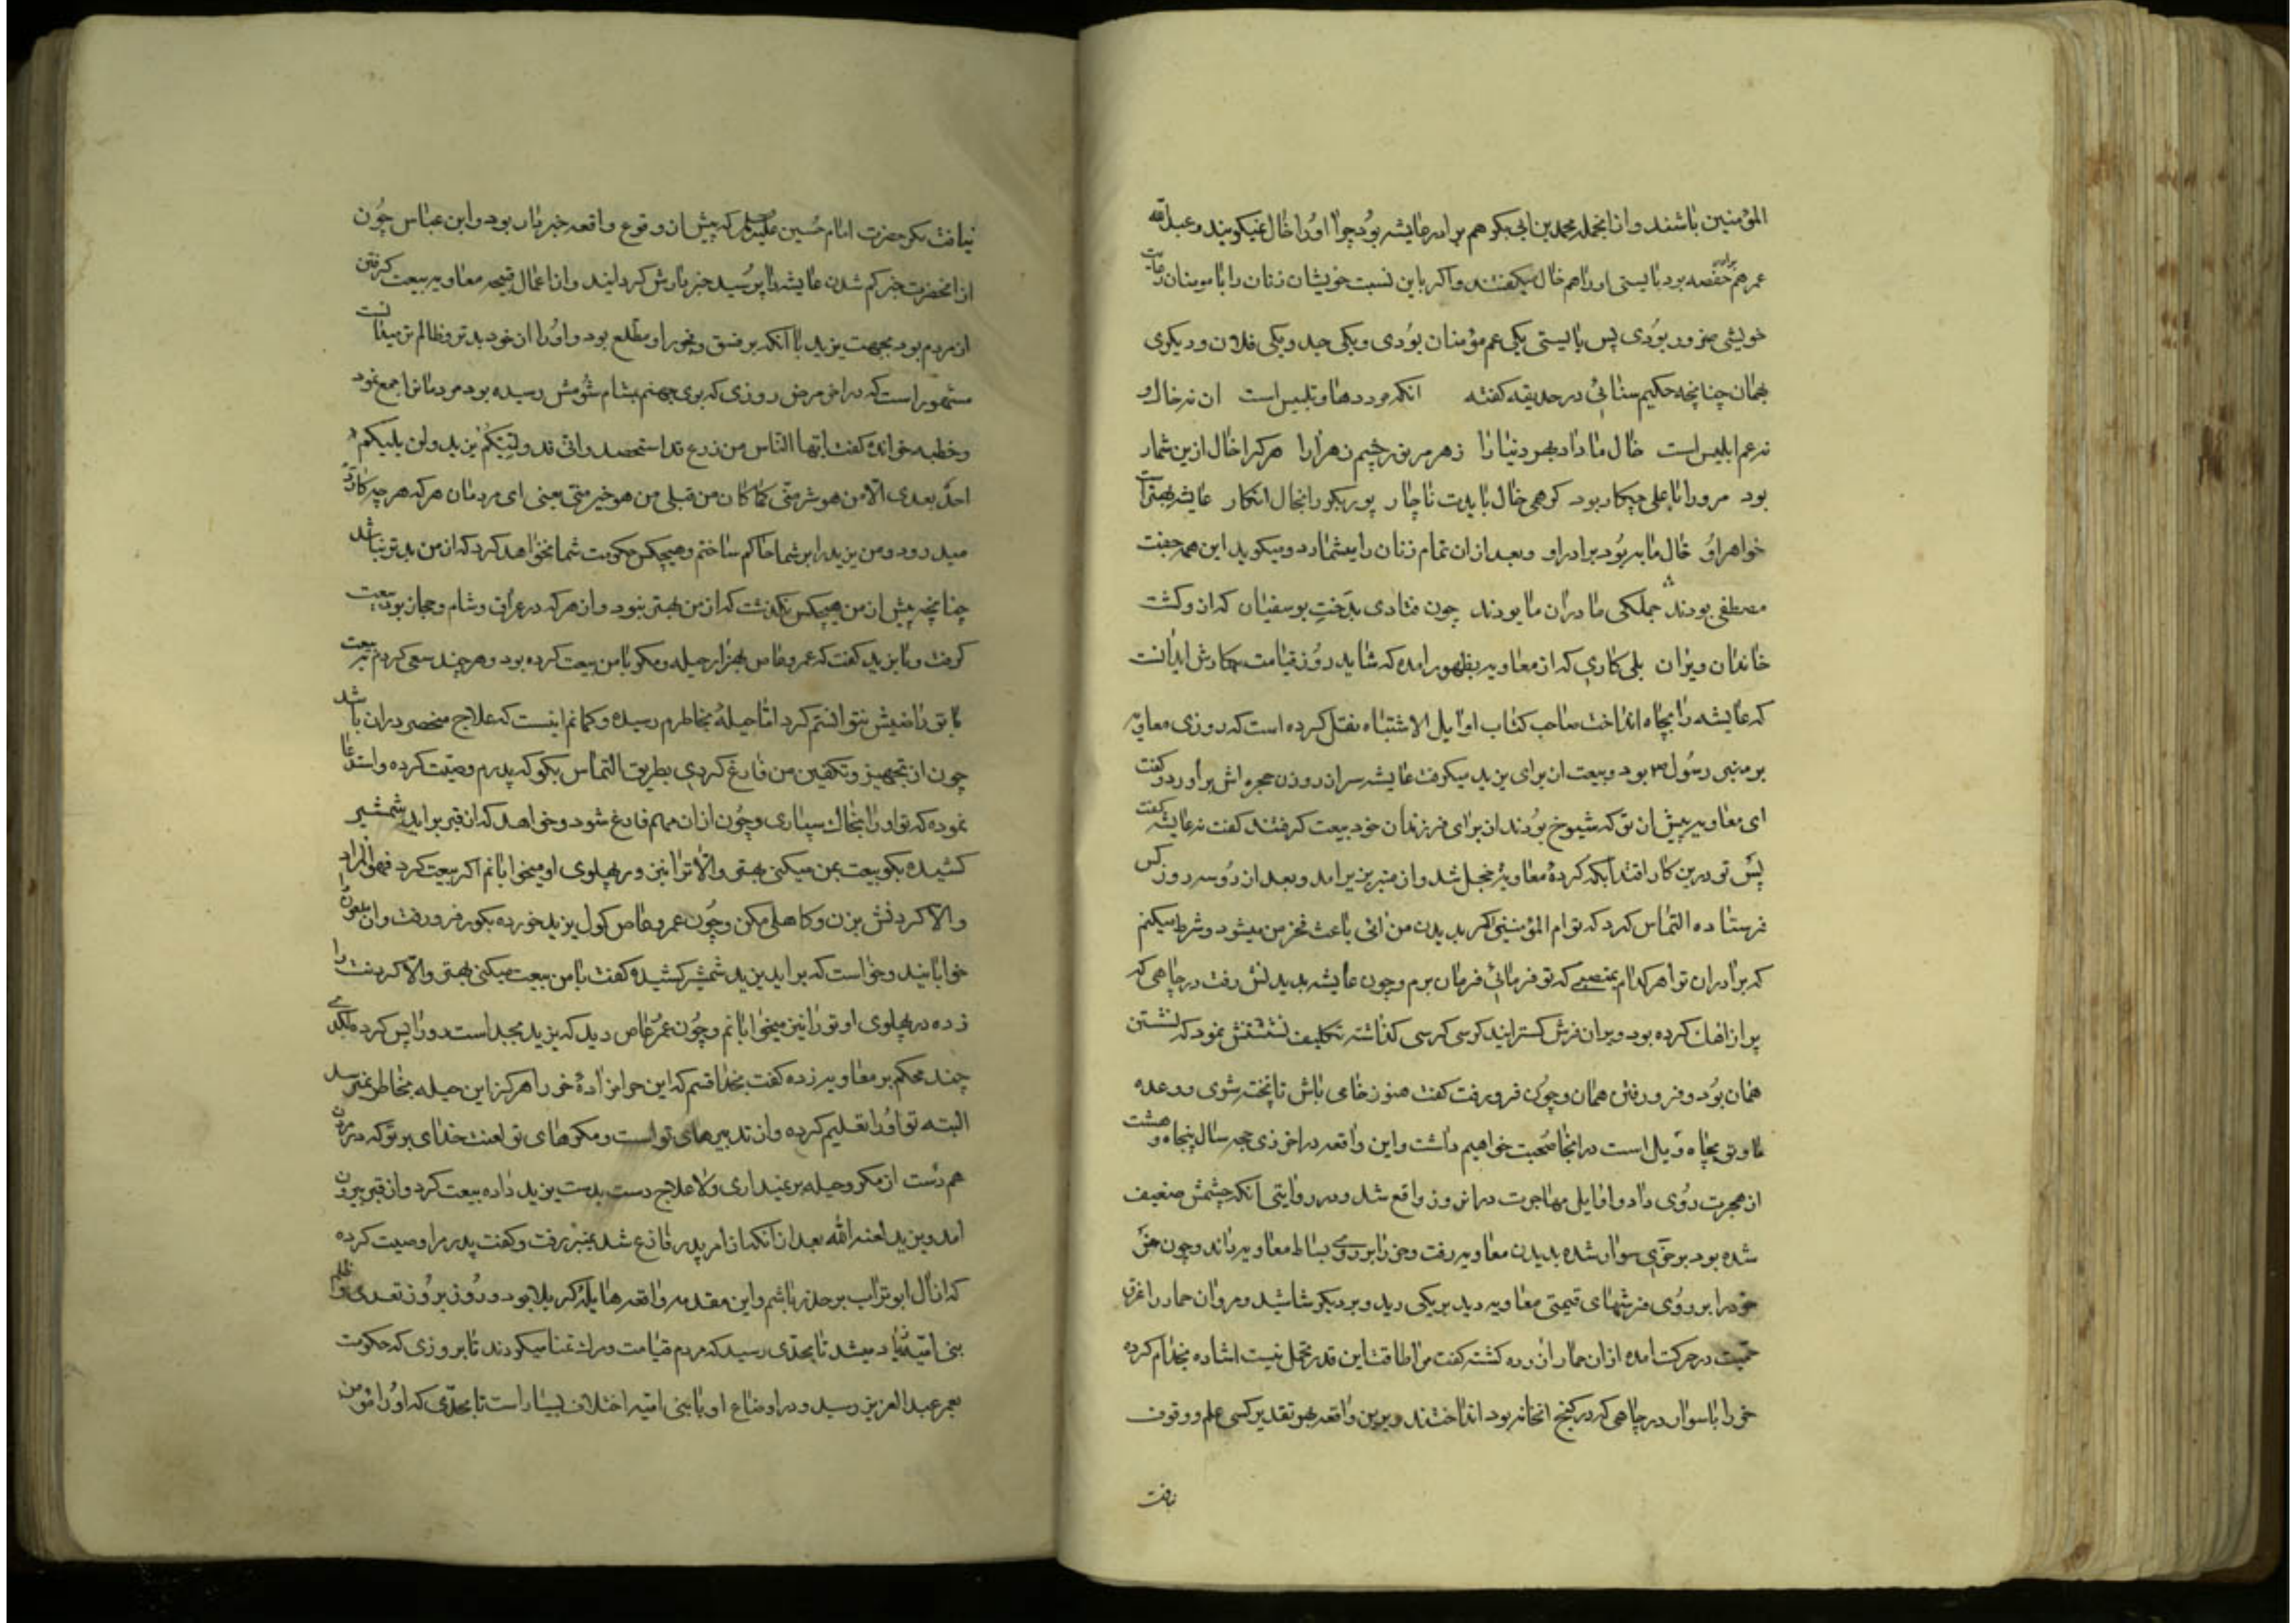 المؤمنین باشند و از انجمله محمد بن ابی بکر هم برادر عایشه بود چرا او را خال نمیکویند و عبد الله
عمر هم برادر حفصه بود بایستی او را هم خال میکفتند و اکر باین نسبت خویشان زنان را با مومنان
خویشی ضرور بودی پس بایستی یکی عم مؤمنان بودی و یکی جد و یکی فلان و دیکری
بهمان چنانچه حکیم سنائی در حدیقه کفته انکه مردد ها و تلبیس است ان نه خال و
نه عم ابلیس است خال ما داد بهر دنیا را زهر مر نور چشم زهرا را هر کرا خال ازین شمار
بود مرورا با علی چکار بود کر همی خال بایدت ناچار پور بکر را بخال انکار عایشه بهتر است
خواهر او خال ما به بود برادر او و بعد ازان تمام زنان را میشمارد و میکوید این همه جفت
مصطفی بودند جملکی مادران ما بودند چون فتادی بدخت بوسفیان که ازو کشت
خاندان ویران بلی کاری که از معاویه بظهور امده که شاید روز قیامت بکارش اید انست
که عایشه را بچاه انداخت صاحب کتاب اوایل الاشتباه نقل کرده است که روزی معاویه
بر منبر رسول ص بود و بیعت از برای یزید میکرفت عایشه سر از روزن حجره اش براورد و کفت
ای معاویه پیش از تو که شیوخ بودند از برای فرزندان خود بیعت کرفتند کفت نه عایشه کفت
پس تو درین کار اقتدا بکه کردهٔ معاویه خجل شد و از منبر بزیر امد و بعد از دو سه روز کس
فرستاده التماس کرد که تو ام المؤمنینی اکر بدیدن من ائی باعث فخر من میشود و شرط میکنم
که برادران تو اهر کدام بمنصبی که تو فرمائی فرمان برم و چون عایشه بدیدنش رفت در چاهی که
پر از اهک کرده بود و بران فرش کسترانیده کرسی کذاشته تکلیف نشستنش نمود که نشستن
همان بود و فرو رفتن همان و چون فرو رفت کفت هنوز خامی باش تا پخته شوی و وعده
ما و تو بچاه ویل است در انجا صحبت خواهیم داشت و این واقعه در اخر ذی حجه سال پنجاه و هشت
از هجرت روی داد و اوایل مهاجرت در انروز واقع شد و در روایتی انکه چشمش ضعیف
شده بود بر خری سوار شده بدیدن معاویه رفت و خر را بر روی بساط معاویه راند و چون خر
خود را بر روی فرشهای قیمتی معاویه دید بر یکی رید و بر دیکر شاشید و مروان حمار را عرق
حمیت در حرکت امده ازان حمار ازرده کشته کفت مرا طاقت این قدر تحمل نیست اشاره بخدام کرده
خر را با سوار در چاهی که در کنج انخانه بود انداختند و برین واقعه بهر تقدیر کسی علم و وقوف
نیافت
نیافت مکر حضرت امام حسین علیه السلام که پیش از وقوع واقعه خبردار بود و ابن عباس چون
از انحضرت خبر کم شدن عایشه را پرسید خبردارش کردانید و از اعمال قبیحه معاویه بیعت کرفتن
از مردم بود بجهت یزید با انکه بر فسق و فجور او مطلع بود و او را از خود بدتر و ظالم تر میدانست
مشهور است که در اخر مرض روزی که بوی جهنم بمشام شومش رسیده بود مردمانرا جمع نمود
و خطبه خوانده کفت ایها الناس من زرع قد استحصد و انی قد ولیتکم یزید و لن یلیکم
احد بعدی الا من هو شر منی کما کان من قبلی من هو خیر منی یعنی ای مردمان هر که هر چه کارد
میدرود و من یزید را بر شما حاکم ساختم و هیچکس حکومت شما نخواهد کرد که از من بدتر نباشد
چنانچه پیش از من هیچکس نکذشت که از من بهتر نبود و از هر که در عراق و شام و حجاز بود بیعت
کرفت و با یزید کفت که عمرو عاص بهزار حیله و مکر با من بیعت کرده بود و هر چند سعی کردم به بیعت
با تو راضیش نتوانستم کرد اما حیلهٔ بخاطرم رسیده و کمانم اینست که علاج منحصر دران باشد
چون از تجهیز و تکفین من فارغ کردی بطریق التماس بکو که پدرم وصیت کرده و استدعا
نموده که تو او را بخاک سپاری و چون ازان مهم فارغ شود و خواهد که از قبر براید شمشیر
کشیده بکو بیعت بمن میکنی بهتر و الا ترا نیز در پهلوی او میخوابانم اکر بیعت کرد فهو المراد
و الا کردنش بزن و کاهلی مکن و چون عمرو عاص کول یزید خورده بکور فرو رفت و ان ملعون را
خوابانید و خواست که براید یزید شمشیر کشیده کفت با من بیعت میکنی بهتر و الا کردنت را
زده در پهلوی او تو را نیز میخوابانم و چون عمرو عاص دید که یزید مجد است رو را پس کرده لکدی
چند محکم بر معاویه زده کفت بخدا قسم که این حرامزادهٔ خر را هرکز این حیله بخاطر نمیرسد
البته تو او را تعلیم کرده و از تدبیرهای تو است و مکرهای تو لعنت خدای بر تو که در مردن
هم دست از مکر و حیله بر نمیداری و لا علاج دست بدست یزید داده بیعت کرد و از قبر بیرون
امد و یزید لعنه الله بعد از انکه از امر پدر فارغ شد بمنبر رفت و کفت پدر مرا وصیت کرده
که از ال ابو تراب بر حذر باشم و این مقدمه واقعه هایلهٔ کربلا بود و روز بروز تعدی و ظلم
بنی امیه زیاد میشد تا بحدی رسید که مردم قیامت و مرک تمنا میکردند تا بروزی که حکومت
بعمر عبد العزیز رسید و در اوضاع او با بنی امیه اختلاف بسیار است تا بحدی که او را مؤمن